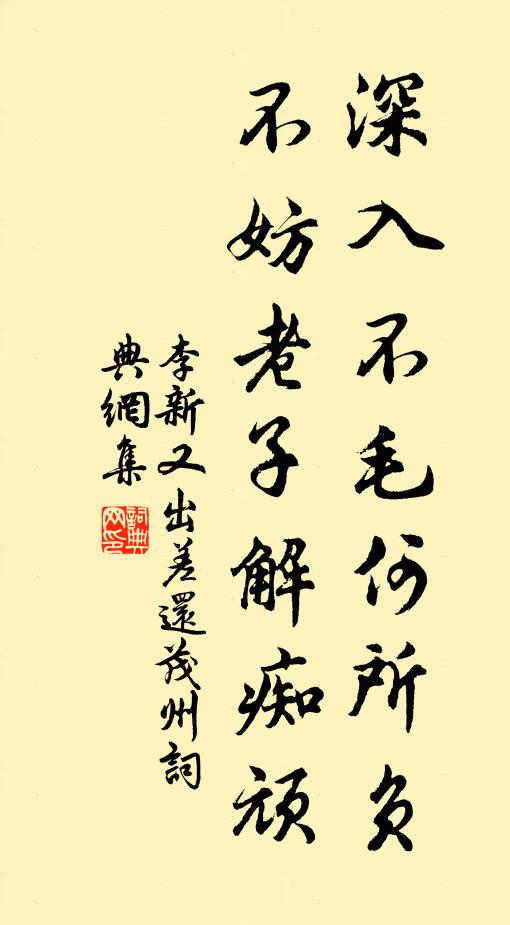 深入不毛何所負
不妨老子解痴頑
李新又出差還茂州詞
典網集
詞典
網印